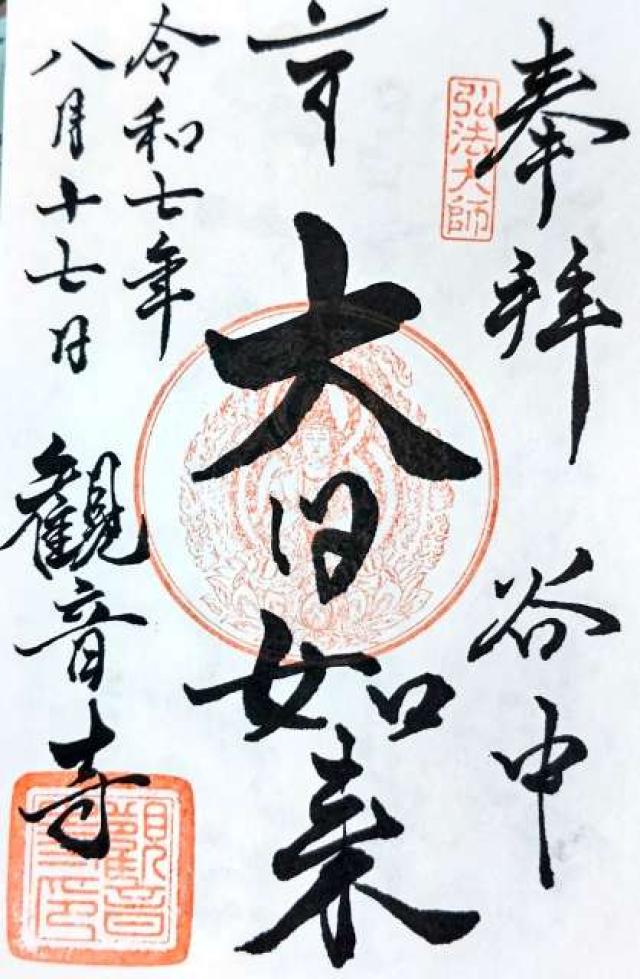 奉拝 谷中
弘法大師
大日如来
令和七年
八月十七日
觀音寺
觀音寺印